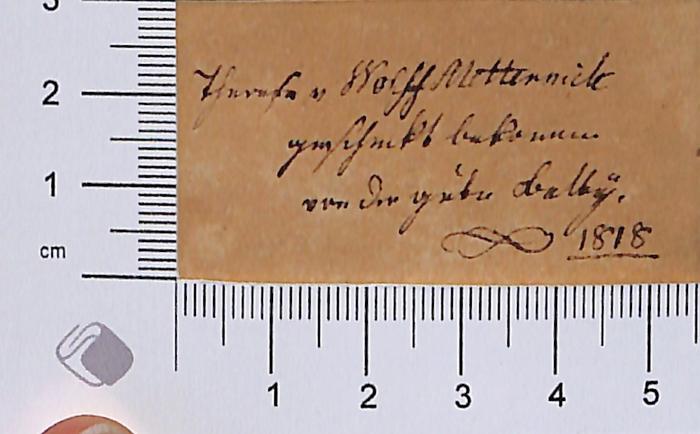 3
Therese v Wolff Metternich
geschenkt bekomen
von der guten Betty.
1818
2
1
cm
1 2 3 4 5